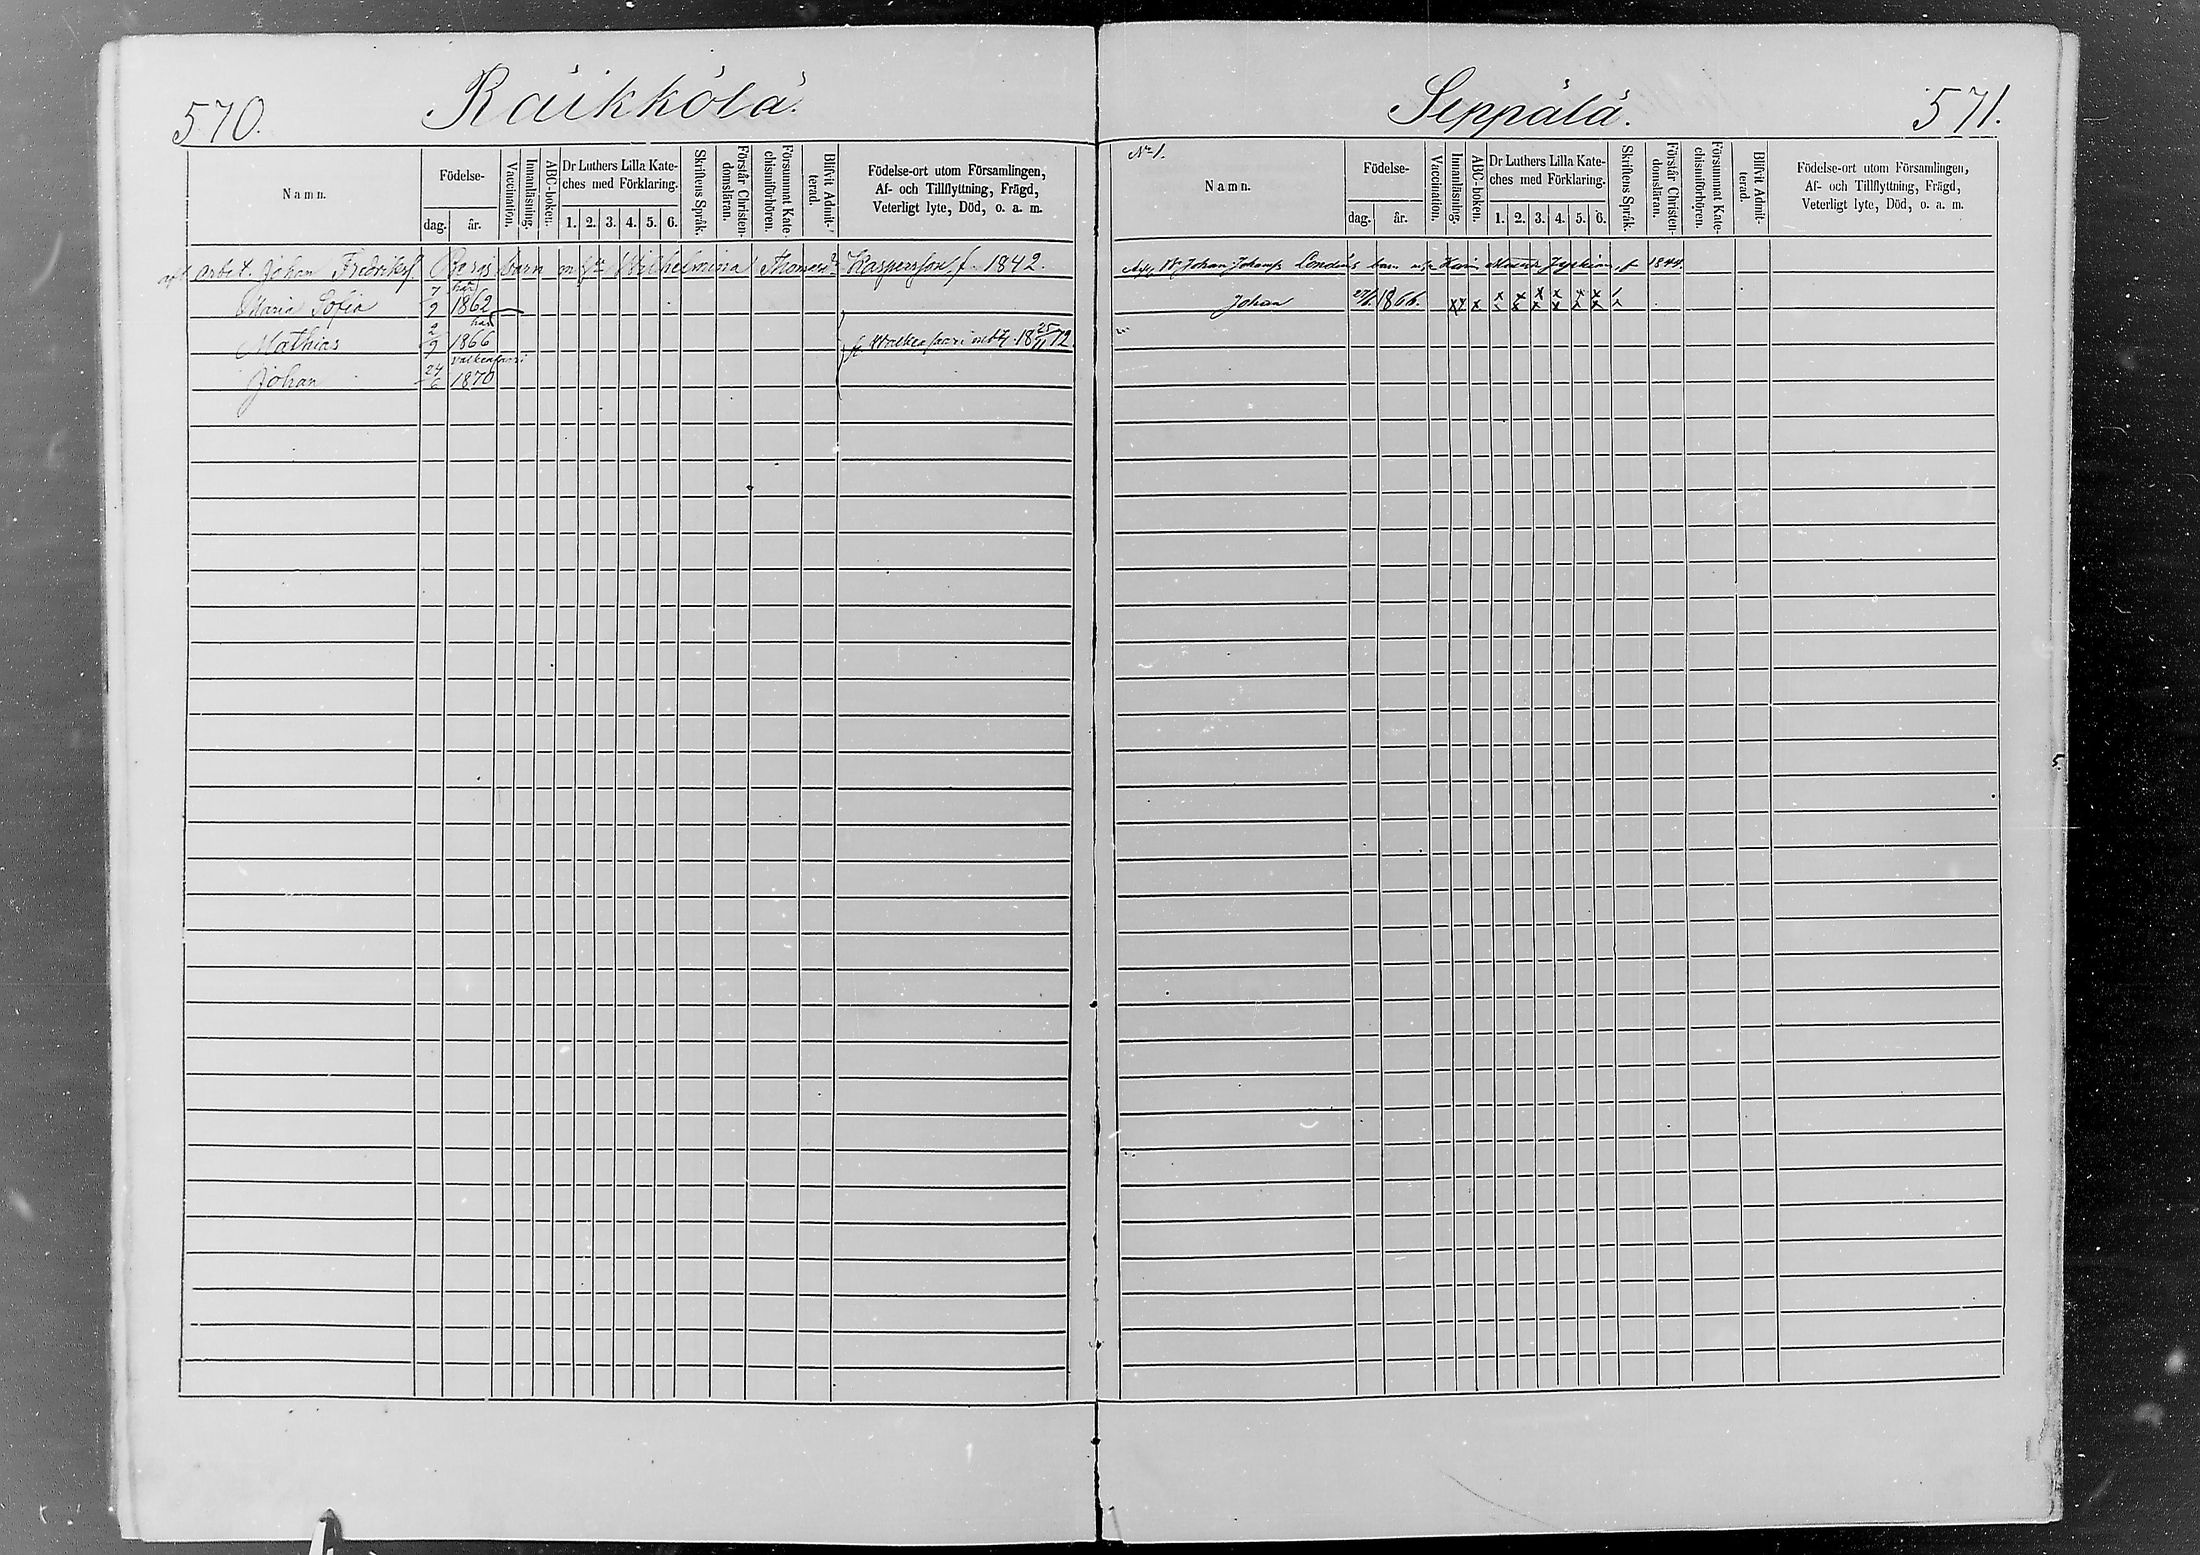 570.
Räikkölä.
Namn.
Födelse-
dag.
år.
Vaccination.
Innanläsning.
ABC-boken.
Dr Luthers Lilla Kate-
ches med Förklaring.
1. 2. 3. 4. 5. 6.
Skriftens Språk.
Förstår Christen-
domsläran.
Försummat Kate-
chismiförhören.
Blifvit Admit-
terad.
Födelse-ort utom Församlingen,
Af- och Tillflyttning, Frägd,
Veterligt lyte, Död, o. a. m.
arbet. Johan Fredriksf Bergs barn m Wilhelmina Thomasd. Kaspersson f. 1842.
här
Maria Sofia 7/9 1862
här
Mathias 2/9 1866 fr. Walkeasaari 18 25/11 72
valkeasaari
Johan 24/6 1870
Seppälä.
571.
No 1.
Namn.
Födelse-
dag.
år.
Vaccination.
Innanläsning.
ABC-boken.
Dr Luthers Lilla Kate-
ches med Förklaring.
1. 2. 3. 4. 5. 6.
Skriftens Språk.
Förstår Christen-
domsläran.
Försummat Kate-
chismiförhören.
Blifvit Admit-
terad.
Födelse-ort utom Församlingen,
Af- och Tillflyttning, Frägd,
Veterligt lyte, Död, o. a. m.
Johan Johansf barn f 1844.
Johan 27/6 1866.